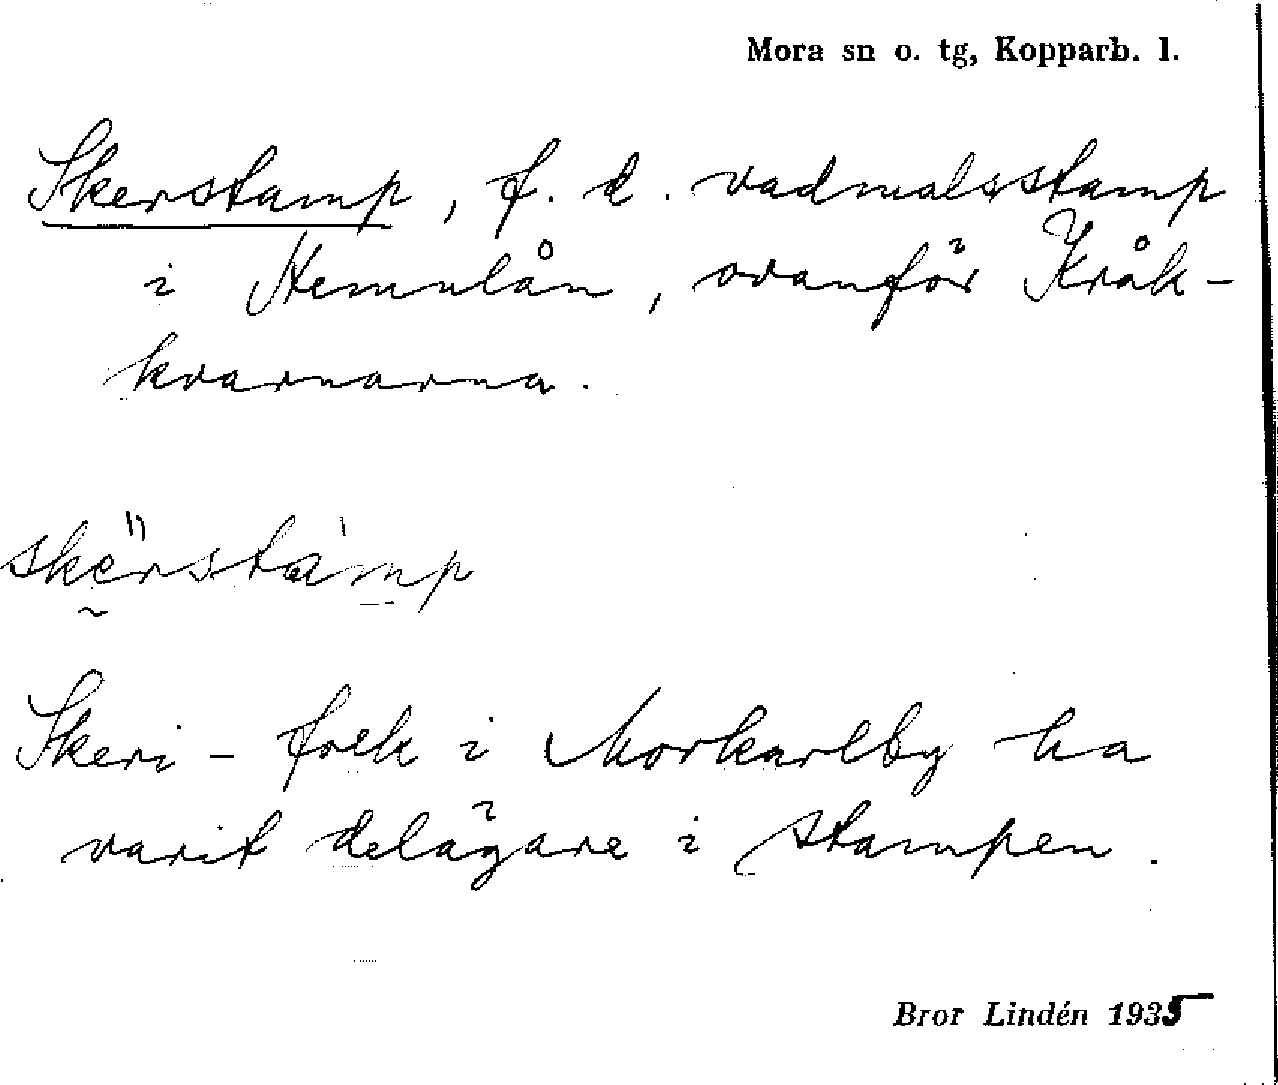 Mora sn o. tg, Kopparb. l.
Skerstamp, f. d. vadmalsstamp
i Hemulån, ovanför Kråk-
kvarnarna.
skèrstàmp
Skeri-folk i Morkarlby ha
varit delägare i stampen.
Bror Lindén 1935